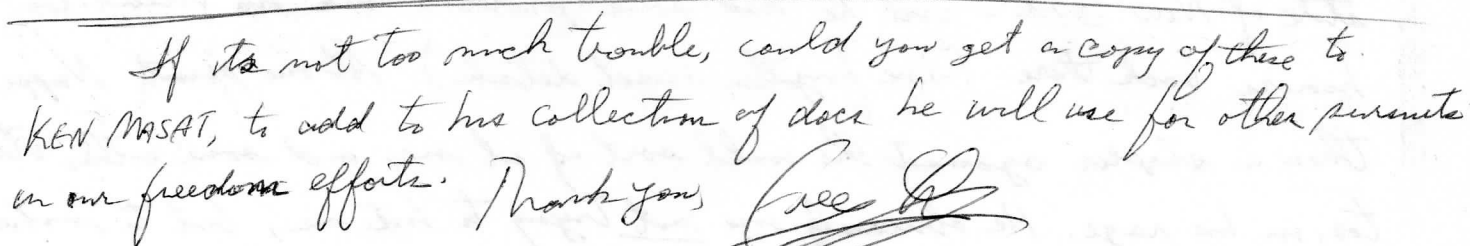 If its not too much trouble, could you get a copy of these to
KEN MASAT, to add to his collection of docs he will use for other pursuits
in our freedom efforts. Thank you,